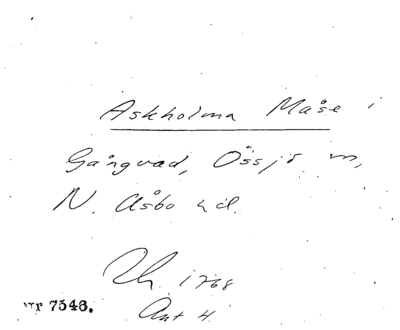 Askholma Måse i
Gångvad, Össjö sn,
N. Åsbo hd.
Uh. 1768
Akt 4.
nr 7546.